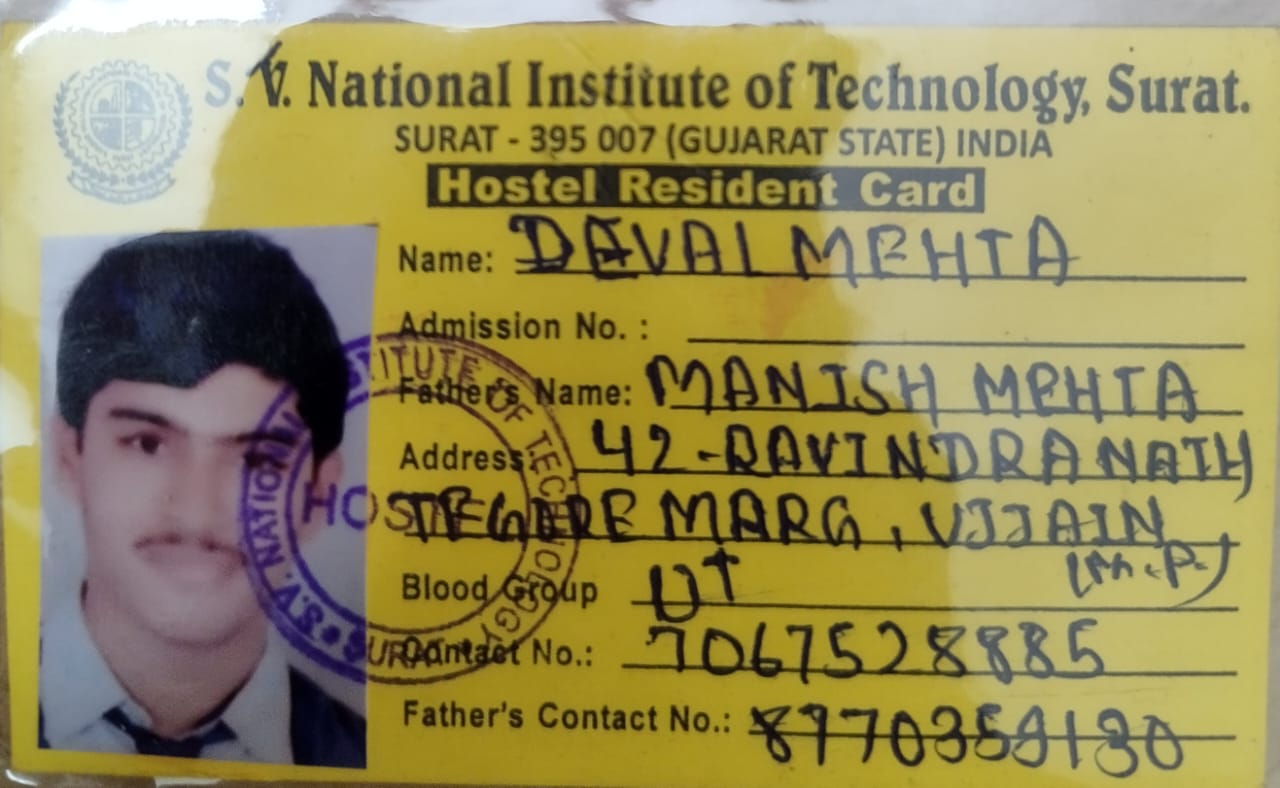 S. V. National Institute of Technology, Surat.
SURAT - 395 007 (GUJARAT STATE) INDIA
Hostel Resident Card
Name: DEVAL MEHTA
Admission No. :
Father's Name: MANISH MEHTA
Address: 42 - RAVINDRANATH
TEGORE MARG, UJJAIN
(M.P.)
Blood Group
Contact No.: 7067528885
Father's Contact No.:
S.V. NATIONAL INSTITUTE OF TECHNOLOGY
HOSTEL
SURAT